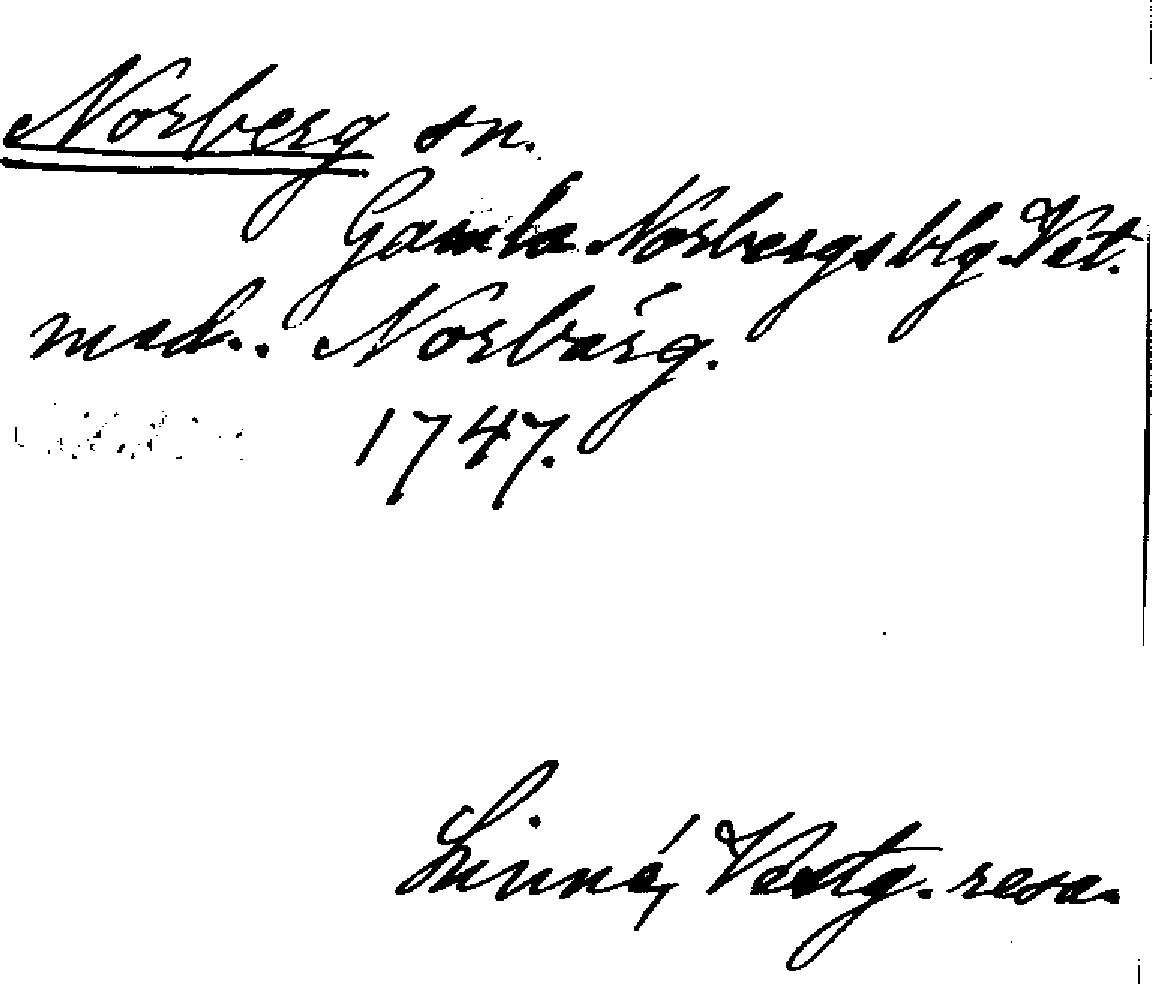 Norberg sn.
Gamla Norbergsblg. Vst.
mnd.. Norbärg.
1747.
Linné, Vestg. resa.